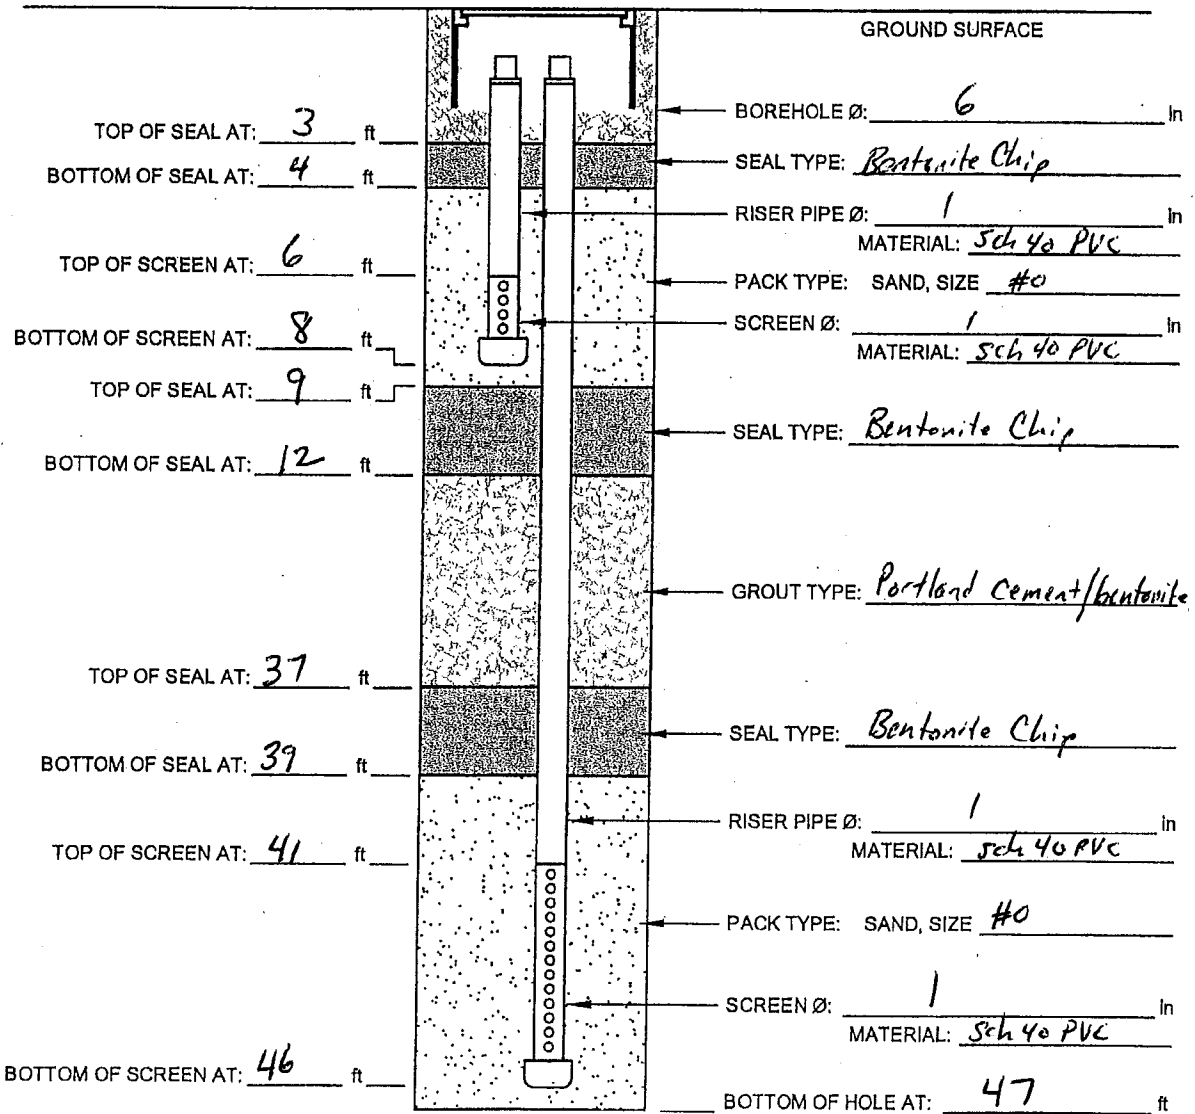 GROUND SURFACE
TOP OF SEAL AT: 3 ft
BOTTOM OF SEAL AT: 4 ft
TOP OF SCREEN AT: 6 ft
BOTTOM OF SCREEN AT: 8 ft
TOP OF SEAL AT: 9 ft
BOTTOM OF SEAL AT: 12 ft
TOP OF SEAL AT: 37 ft
BOTTOM OF SEAL AT: 39 ft
TOP OF SCREEN AT: 41 ft
BOTTOM OF SCREEN AT: 46 ft
BOREHOLE Ø: 6 in
SEAL TYPE: Bentonite Chip
RISER PIPE Ø: 1 in
MATERIAL: Sch 40 PVC
PACK TYPE: SAND, SIZE #0
SCREEN Ø: 1 in
MATERIAL: Sch 40 PVC
SEAL TYPE: Bentonite Chip
GROUT TYPE: Portland Cement/bentonite
SEAL TYPE: Bentonite Chip
RISER PIPE Ø: 1 in
MATERIAL: Sch 40 PVC
PACK TYPE: SAND, SIZE #0
SCREEN Ø: 1 in
MATERIAL: Sch 40 PVC
BOTTOM OF HOLE AT: 47 ft